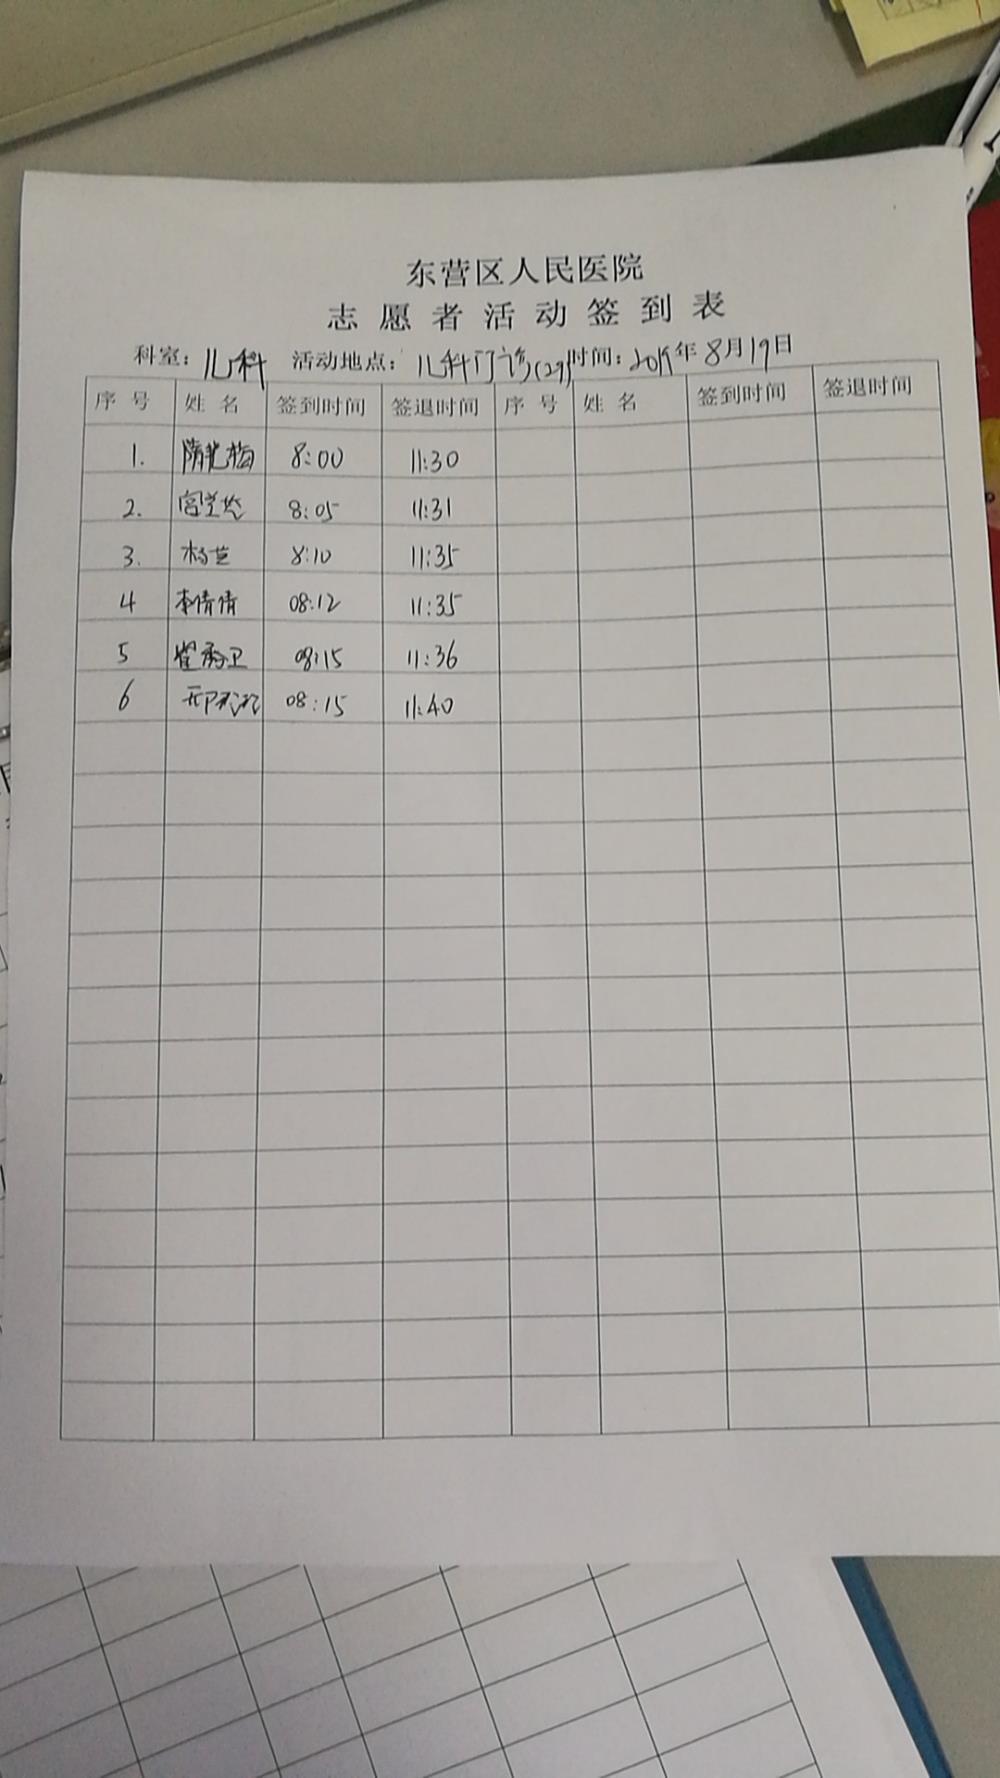 东营区人民医院
志愿者活动签到表
科室：儿科 活动地点：儿科门诊 时间：2019年8月19日
序号 姓名 签到时间 签退时间 序号 姓名 签到时间 签退时间
1. 8:00 11:30
2. 8:05 11:31
3. 杨兰 8:10 11:35
4 李倩倩 08:12 11:35
5 08:15 11:36
6 08:15 11:40